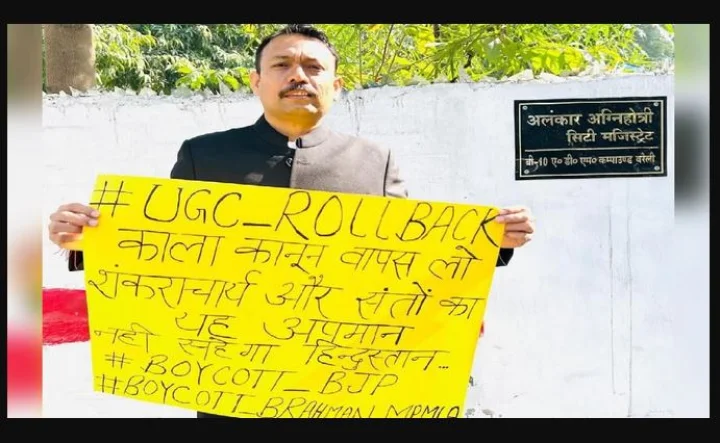 अलंकार अग्निहोत्री
सिटी मजिस्ट्रेट
बी-10 ए० डी० एम० कम्पाउण्ड बरेली
# UGC_ROLLBACK
काला कानून वापस लो
शंकराचार्य और संतों का
यह अपमान
नहीं सहेगा हिन्दुस्तान...
# BOYCOTT_BJP
#BOYCOTT_BRAHMAN_MPMLA